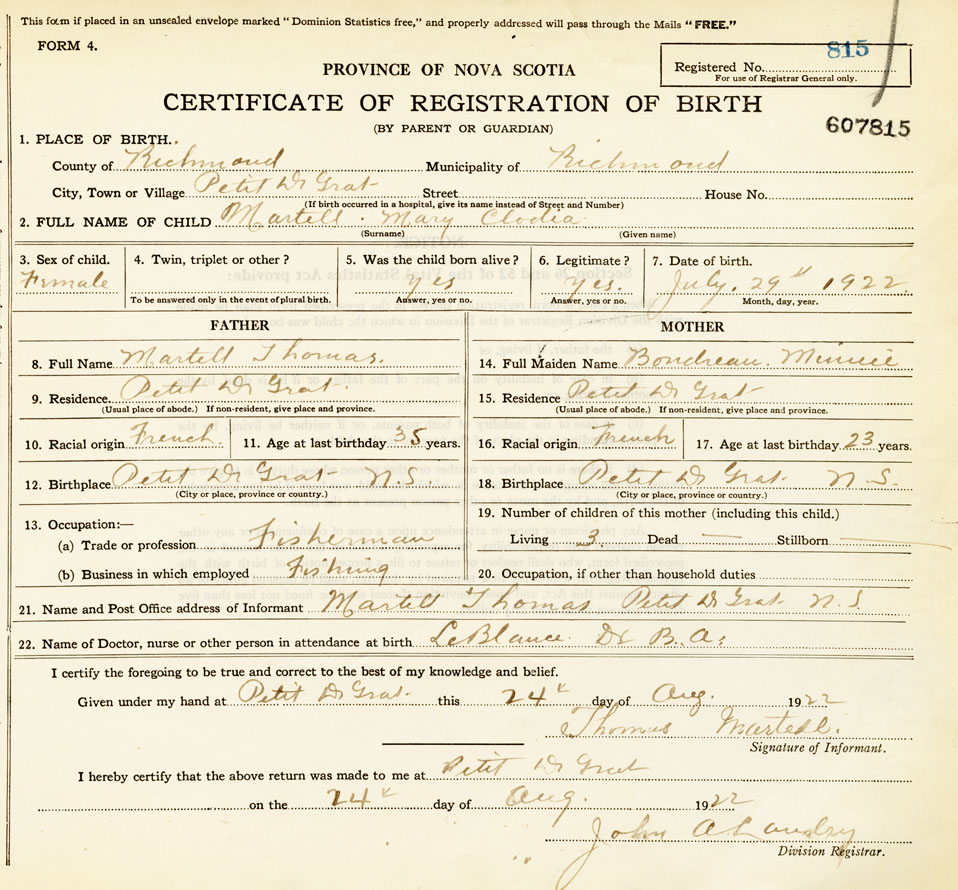 This form if placed in an unsealed envelope marked "Dominion Statistics free," and properly addressed will pass through the Mails "FREE."
FORM 4.
815
Registered No.
For use of Registrar General only.
PROVINCE OF NOVA SCOTIA
CERTIFICATE OF REGISTRATION OF BIRTH
(BY PARENT OR GUARDIAN)
607815
1. PLACE OF BIRTH.
County of Richmond Municipality of Richmond
City, Town or Village Petit De Grat Street House No.
(If birth occurred in a hospital, give its name instead of Street and Number)
2. FULL NAME OF CHILD Martell Mary Clodia
(Surname) (Given name)
3. Sex of child. 4. Twin, triplet or other? 5. Was the child born alive? 6. Legitimate? 7. Date of birth.
Female yes yes. July. 29th 1922.
To be answered only in the event of plural birth. Answer, yes or no. Answer, yes or no. Month, day, year.
FATHER MOTHER
8. Full Name Martell Thomas. 14. Full Maiden Name Boudreau Minnie
9. Residence. Petit De Grat. 15. Residence Petit De Grat
(Usual place of abode.) If non-resident, give place and province. (Usual place of abode.) If non-resident, give place and province.
10. Racial origin French. 11. Age at last birthday 35 years. 16. Racial origin French 17. Age at last birthday 23 years.
12. Birthplace Petit De Grat N.S. 18. Birthplace Petit De Grat. N.S.
(City or place, province or country.) (City or place, province or country.)
13. Occupation:— 19. Number of children of this mother (including this child.)
(a) Trade or profession Fisherman Living 3 Dead — Stillborn —
(b) Business in which employed Fishing 20. Occupation, if other than household duties
21. Name and Post Office address of Informant Martell Thomas Petit De Grat N.S.
22. Name of Doctor, nurse or other person in attendance at birth LeBlance Dr B.A.
I certify the foregoing to be true and correct to the best of my knowledge and belief.
Given under my hand at Petit De Grat. this 24th day of Aug. 1922
Thomas Martell.
Signature of Informant.
I hereby certify that the above return was made to me at Petit De Grat
on the 24th day of Aug. 1922
John A Landry
Division Registrar.